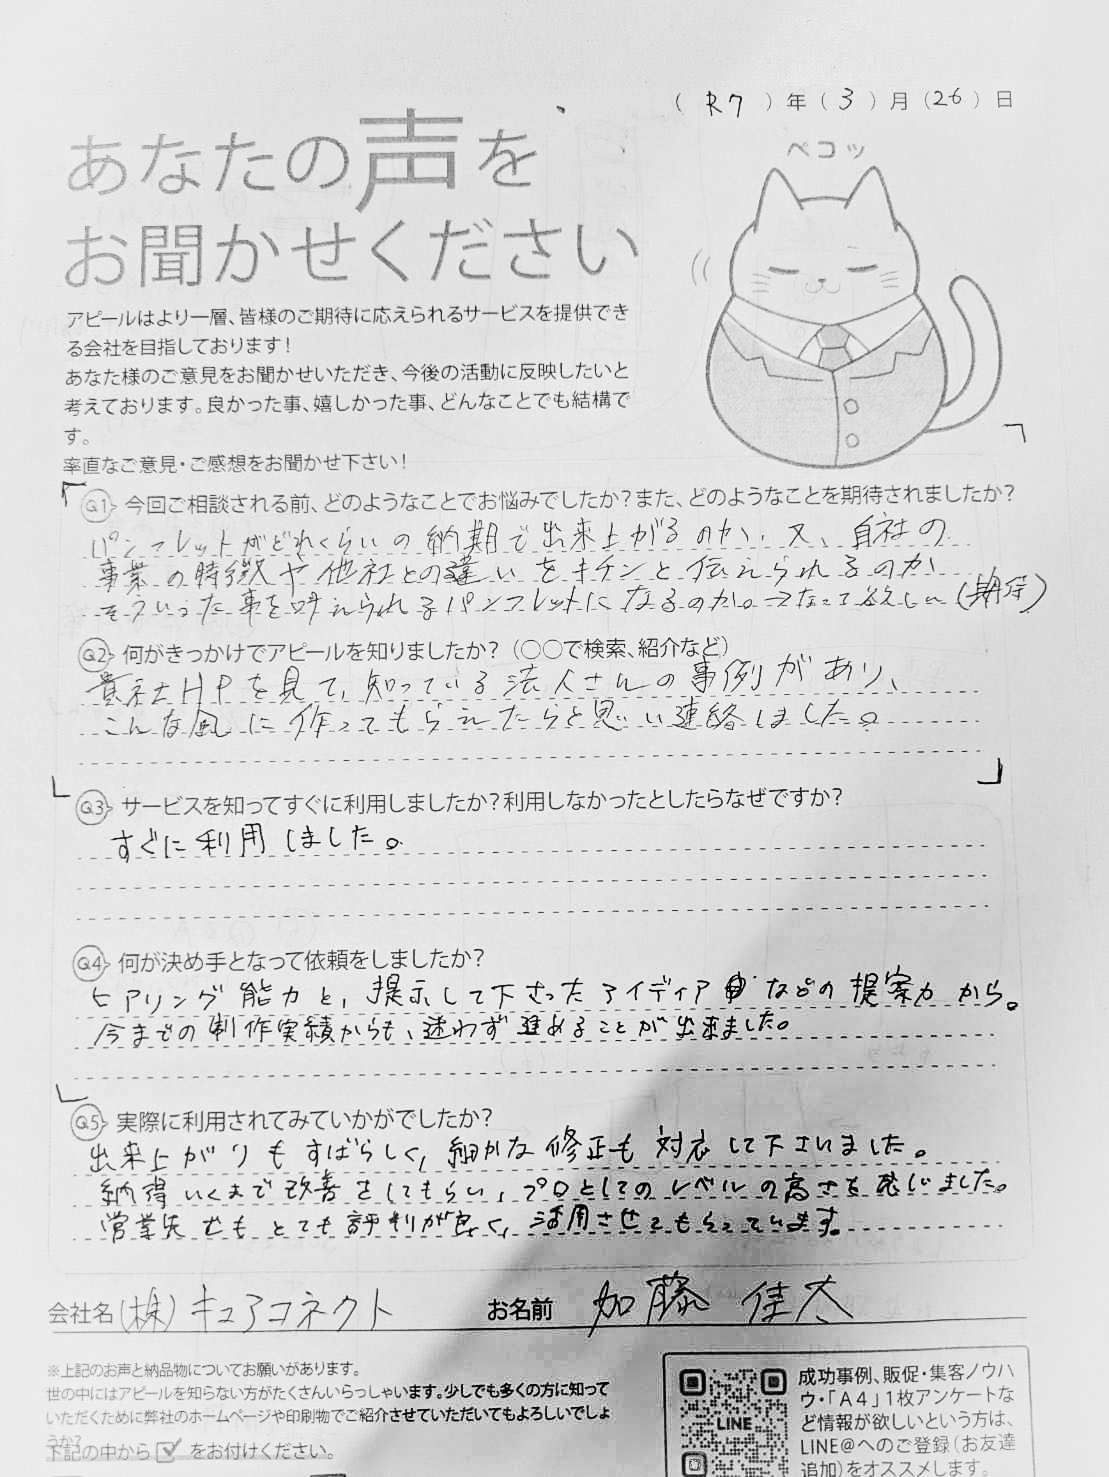 （R7）年（3）月（26）日
ペコッ
あなたの声を
お聞かせください
アピールはより一層、皆様のご期待に応えられるサービスを提供でき
る会社を目指しております！
あなた様のご意見をお聞かせいただき、今後の活動に反映したいと
考えております。良かった事、嬉しかった事、どんなことでも結構で
す。
率直なご意見・ご感想をお聞かせ下さい！
Q1 今回ご相談される前、どのようなことでお悩みでしたか？また、どのようなことを期待されましたか？
パンフレットがどれくらいの納期で出来上がるのか、又、自社の
事業の特徴や他社との違いをキチンと伝えられるのか
そういった事を叶えられるパンフレットになるのか。→なって欲しい（期待）
Q2 何がきっかけでアピールを知りましたか？（○○で検索、紹介など）
貴社HPを見て、知っている法人さんの事例があり、
こんな風に作ってもらえたらと思い連絡しました。
Q3 サービスを知ってすぐに利用しましたか？利用しなかったとしたらなぜですか？
すぐに利用しました。
Q4 何が決め手となって依頼をしましたか？
ヒアリング能力と、提示して下さったアイディアなどの提案力から。
今までの制作実績からも、迷わず進めることが出来ました。
Q5 実際に利用されてみていかがでしたか？
出来上がりもすばらしく、細かな修正も対応して下さいました。
納得いくまで改善をしてもらい、プロとしてのレベルの高さを感じました。
営業先でもとても評判が良く、活用させてもらっています。
会社名（株）キュアコネクト お名前 加藤 佳太
※上記のお声と納品物についてお願いがあります。
世の中にはアピールを知らない方がたくさんいらっしゃいます。少しでも多くの方に知って
いただくために弊社のホームページや印刷物でご紹介させていただいてもよろしいでしょ
うか？
下記の中から☑をお付けください。
LINE
成功事例、販促・集客ノウハ
ウ・「A4」1枚アンケートな
ど情報が欲しいという方は、
LINE@へのご登録（お友達
追加）をオススメします。